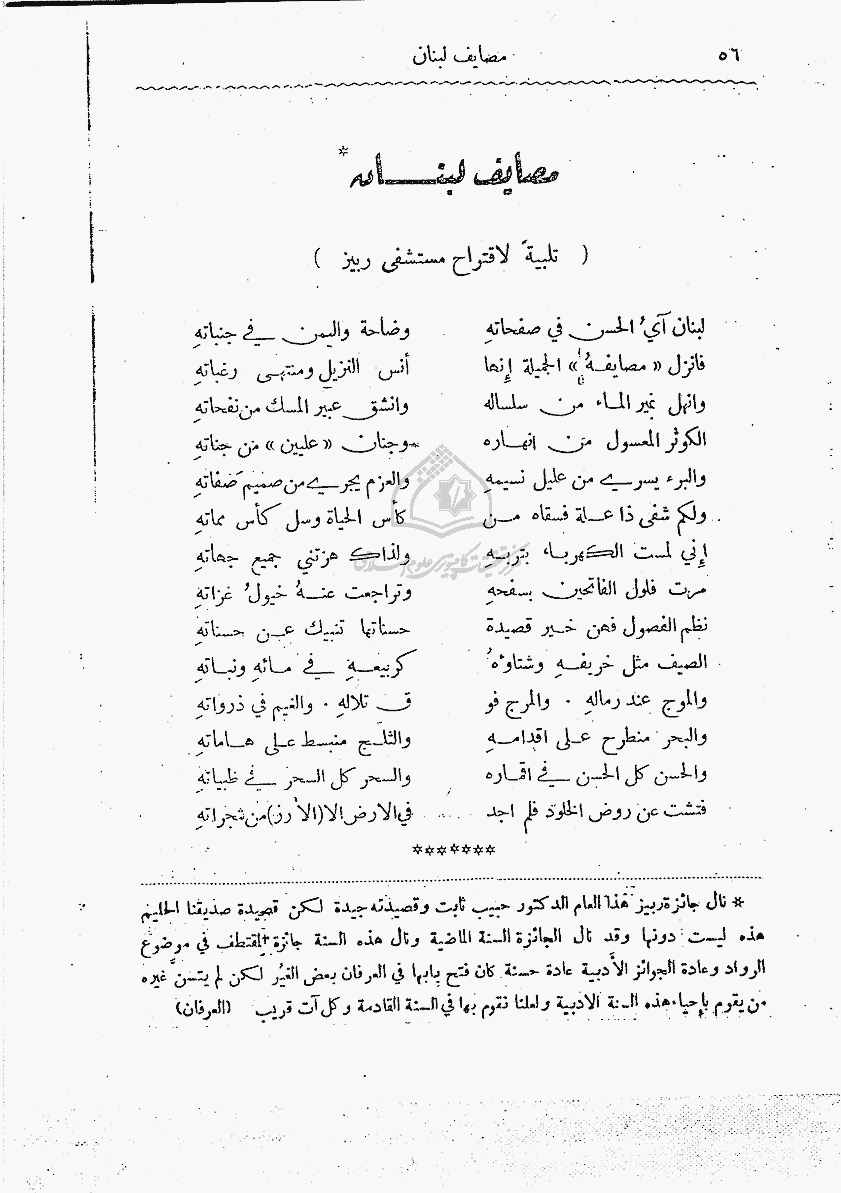 ٥٦
مصايف لبنان
مصايف لبنـــان *
( تلبيةً لاقتراح مستشفى ربيز )
لبنان آيُ الحسن في صفحاتهِ وضاحة واليمن في جنباتهِ
فانزل « مصايفهُ » الجميلة إنها أنس النزيل ومنتهى رغباتهِ
وانهل نمير المـاء من سلساله وانشق عبير المسك من نفحاته
الكوثر المعسول من انهاره وجنان « عليين » من جناتهِ
والبرء يسري من عليل نسيمهِ والعزم يجري من صميم صفاتهِ
ولكم شفى ذا عـلة فسقاه مـن كأس الحياة وسل كأس مماتهِ
إني لمست الكهربـاء بتربـهِ ولذاك هزتني جميع جهاتهِ
مرت فلول الفاتحين بسفحهِ وتراجعت عنـهُ خيولُ غزاتهِ
نظم الفصول فهن خـير قصيدة حسناتها تنبيك عـن حسناتهِ
الصيف مثل خريفـهِ وشتاوهُ كربيعـهِ في مـائهِ ونبـاتهِ
والموج عند رمالهِ . والمرج فو ق تلالهِ . والغيم في ذرواتهِ
والبحر منطرح عـلى اقدامـهِ والثلـج منبسط عـلى هـاماتهِ
والحسن كل الحسن في اقمـاره والسحر كل السحر في ظبياتهِ
فتشت عن روض الخلود فلم اجد في الارض الا (الأرز) من شجراتهِ
*******
* نال جائزة ربيز هذا العام الدكتور حبيب ثابت وقصيدته جيدة لكن قصيدة صديقنا الحليم
هذه ليست دونها وقد نال الجائزة السنة الماضية ونال هذه السنة جائزة المقتطف في موضوع
الرواد وعادة الجوائز الأدبية عادة حسنة كان فتح بابها في العرفان بعض الغُيُر لكن لم يتسن غيره
من يقوم بإحياء هذه السنة الادبية ولعلنا نقوم بها في السنة القادمة وكل آت قريب (العرفان)